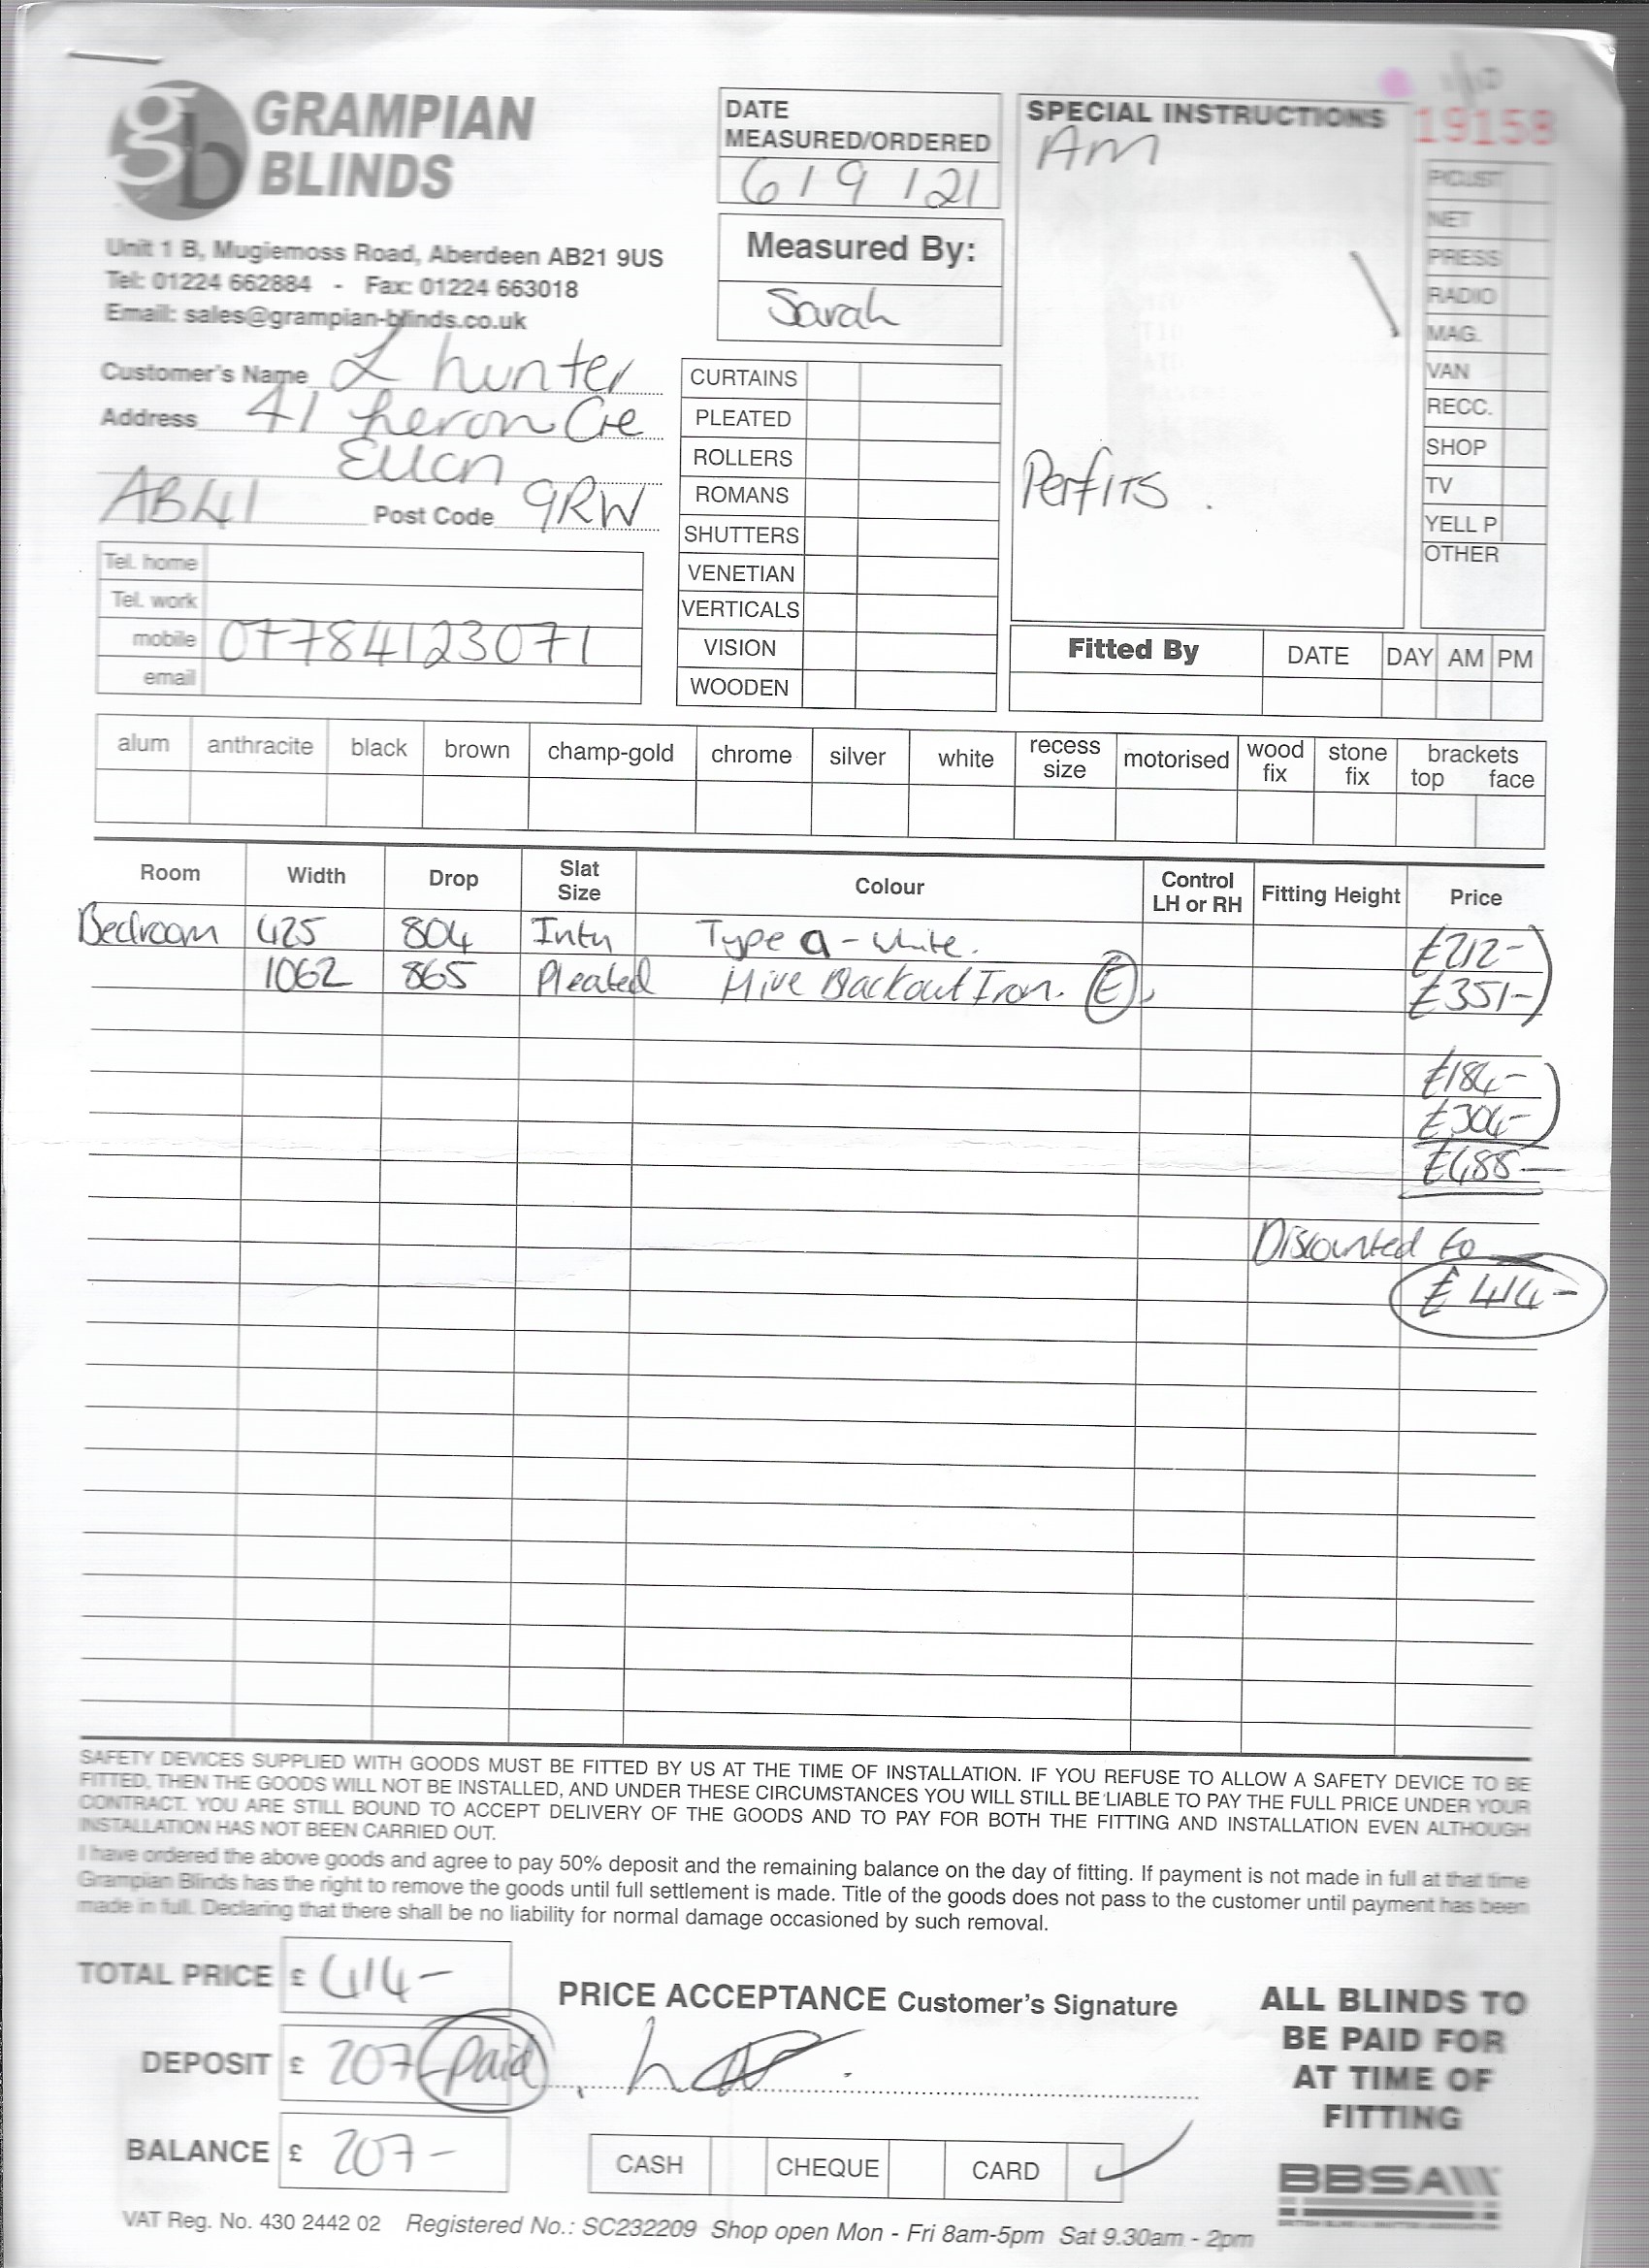 GRAMPIAN
BLINDS
Unit 1 B, Mugiemoss Road, Aberdeen AB21 9US
Tel: 01224 662884 - Fax: 01224 663018
Email: sales@grampian-blinds.co.uk
DATE
MEASURED/ORDERED
6/9/21
Measured By:
Sarah
SPECIAL INSTRUCTIONS
AM
Perfits.
19158
P/CUST
NET
PRESS
RADIO
MAG.
VAN
RECC.
SHOP
TV
YELL P
OTHER
Customer's Name L hunter
Address 41 heron Cre
Ellon
AB41 Post Code 9RW
Tel. home
Tel. work
mobile 07784123071
email
CURTAINS
PLEATED
ROLLERS
ROMANS
SHUTTERS
VENETIAN
VERTICALS
VISION
WOODEN
Fitted By DATE DAY AM PM
alum anthracite black brown champ-gold chrome silver white recess size motorised wood fix stone fix brackets top face
Room Width Drop Slat Size Colour Control LH or RH Fitting Height Price
Bedroom 425 804 Intu Type a - white. £212-
1062 865 Pleated Hive Backout Iron. E £351-
£184-
£304-
£488-
Discounted to
£414-
SAFETY DEVICES SUPPLIED WITH GOODS MUST BE FITTED BY US AT THE TIME OF INSTALLATION. IF YOU REFUSE TO ALLOW A SAFETY DEVICE TO BE
FITTED, THEN THE GOODS WILL NOT BE INSTALLED, AND UNDER THESE CIRCUMSTANCES YOU WILL STILL BE LIABLE TO PAY THE FULL PRICE UNDER YOUR
CONTRACT. YOU ARE STILL BOUND TO ACCEPT DELIVERY OF THE GOODS AND TO PAY FOR BOTH THE FITTING AND INSTALLATION EVEN ALTHOUGH
INSTALLATION HAS NOT BEEN CARRIED OUT.
I have ordered the above goods and agree to pay 50% deposit and the remaining balance on the day of fitting. If payment is not made in full at that time
Grampian Blinds has the right to remove the goods until full settlement is made. Title of the goods does not pass to the customer until payment has been
made in full. Declaring that there shall be no liability for normal damage occasioned by such removal.
TOTAL PRICE £ 414-
DEPOSIT £ 207- Paid
BALANCE £ 207-
PRICE ACCEPTANCE Customer's Signature
CASH CHEQUE CARD ✓
ALL BLINDS TO
BE PAID FOR
AT TIME OF
FITTING
BBSA
VAT Reg. No. 430 2442 02 Registered No.: SC232209 Shop open Mon - Fri 8am-5pm Sat 9.30am - 2pm